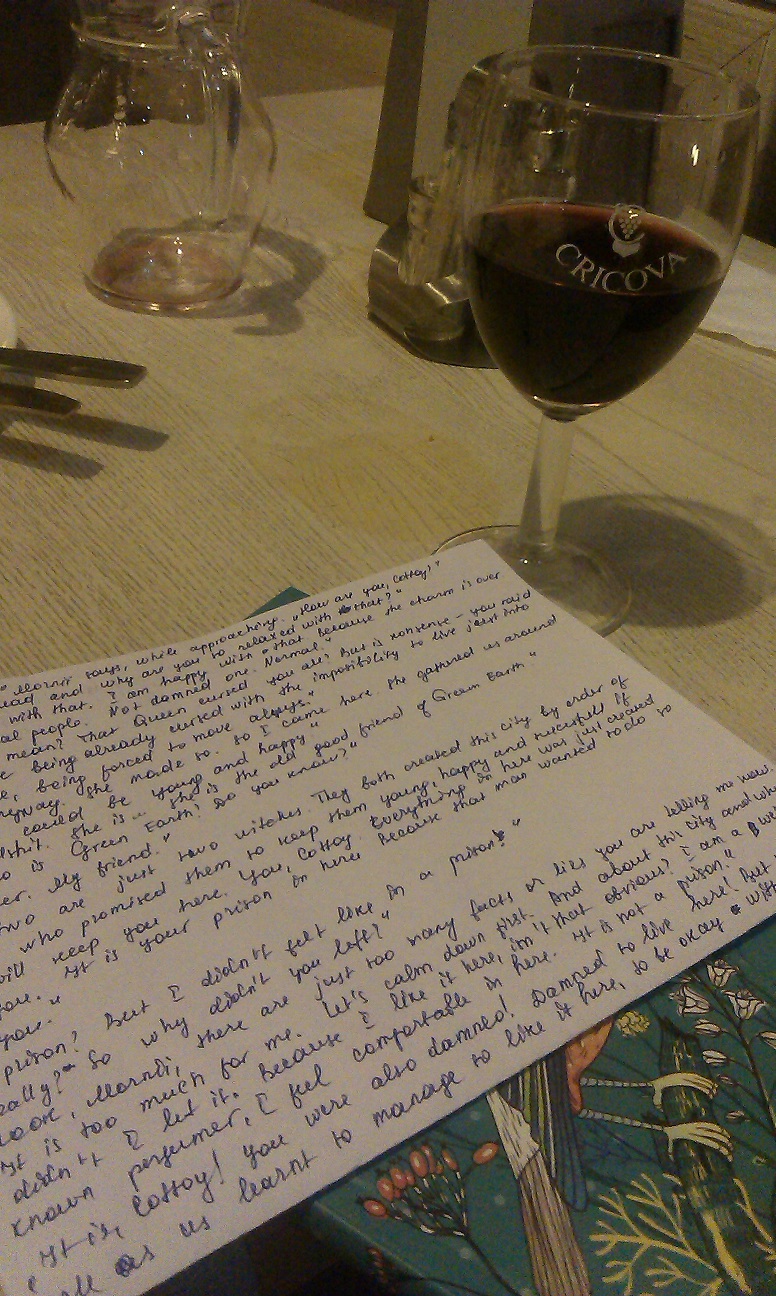 CRICOVA
says, while approaching. „How are you, Cottoy?"
and why are you so relaxed with that?"
with that. I am happy with that because the charm is over
people. Not damned one. Normal."
mean? That Queen cursed you all? But is nonsense – you said
being already cursed with the impossibility to live just into
, being forced to move always."
She made so. So I came here. She gathered us around
could be young and happy"
She is... she is the old good friend of Green Earth."
is Green Earth? Do you know?"
My friend."
two are just two witches. They both created this city by order of
who promised them to keep them young, happy and succesfull if
will keep you here. You, Cottoy. Everything in here was just created
you. It is your prison in here because that man wanted to do so
you."
prison? But I didn't felt like in a prison!"
So why didn't you left?"
there are just too many facts or lies you are telling me now.
It is too much for me. Let's calm down first. And about this city and why
didn't I left it. Because I like it here, isn't that obvious? I am a
known perfumer, I feel comfortable in here. It is not a prison."
It is, Cottoy! You were also damned! Damned to live here! But
all as us learnt to manage to like it here, to be okay with